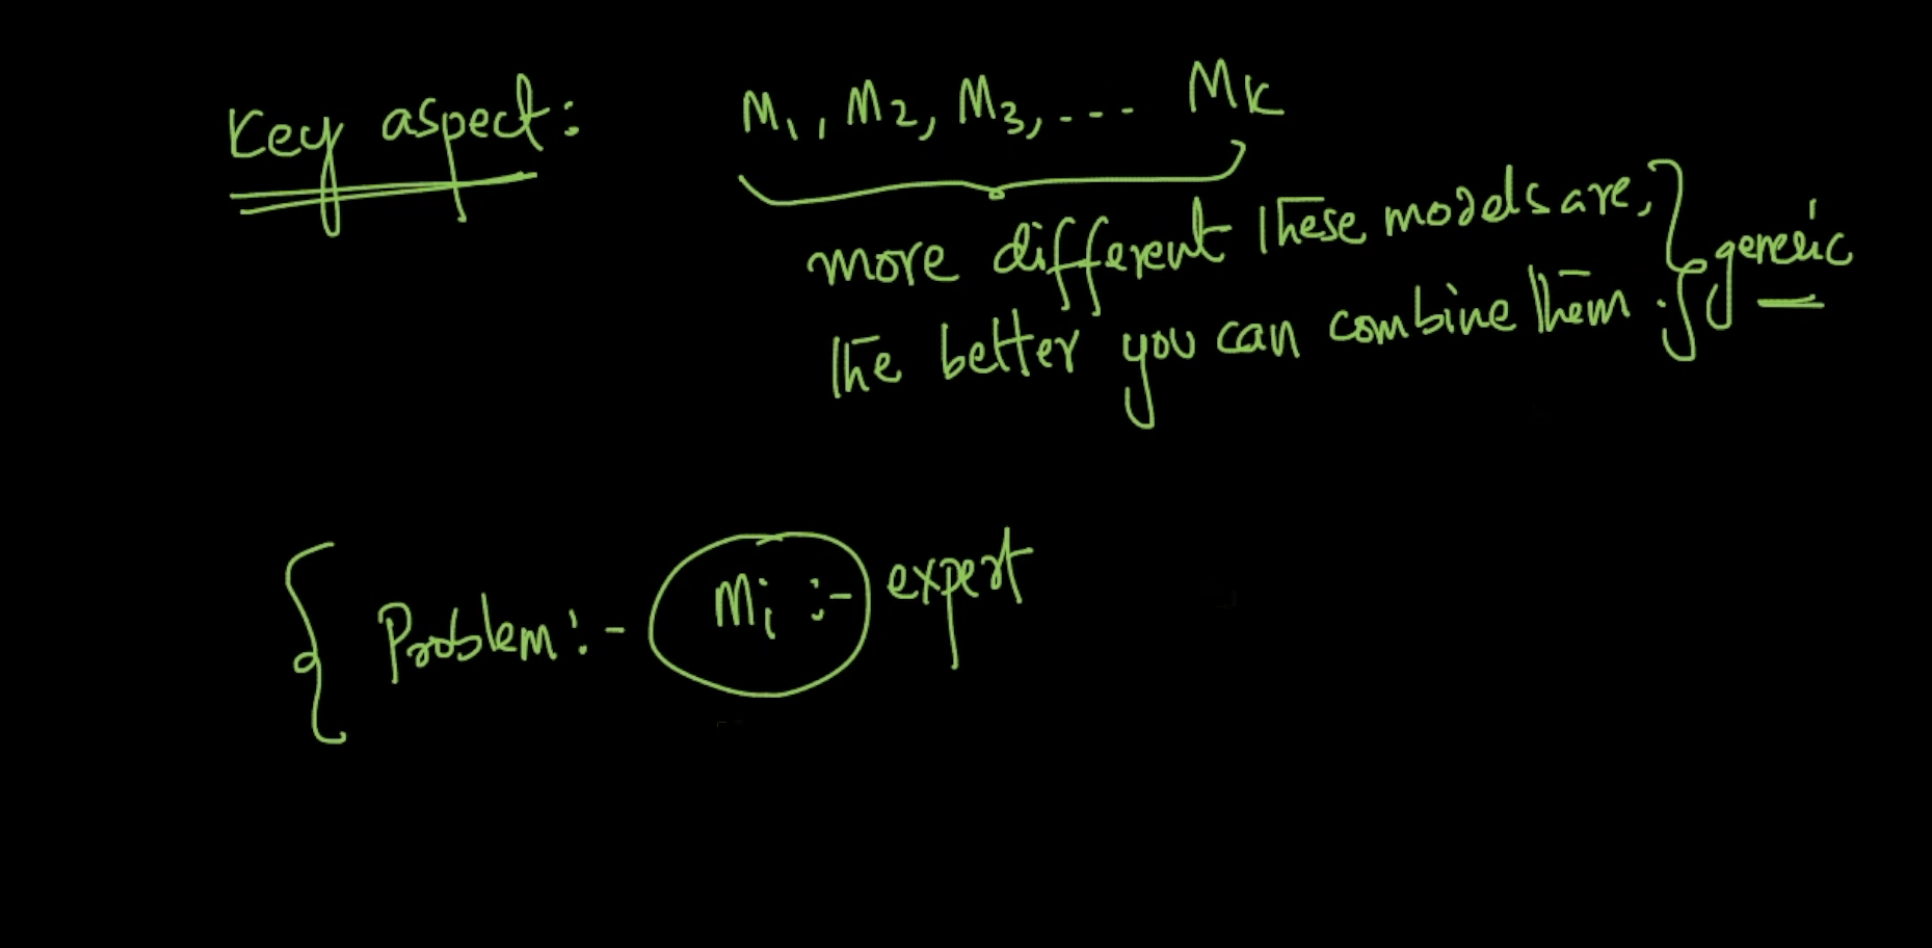 Key aspect: M1, M2, M3, ... MK
more different these models are,
the better you can combine them.
generic
Problem:- Mi :- expert